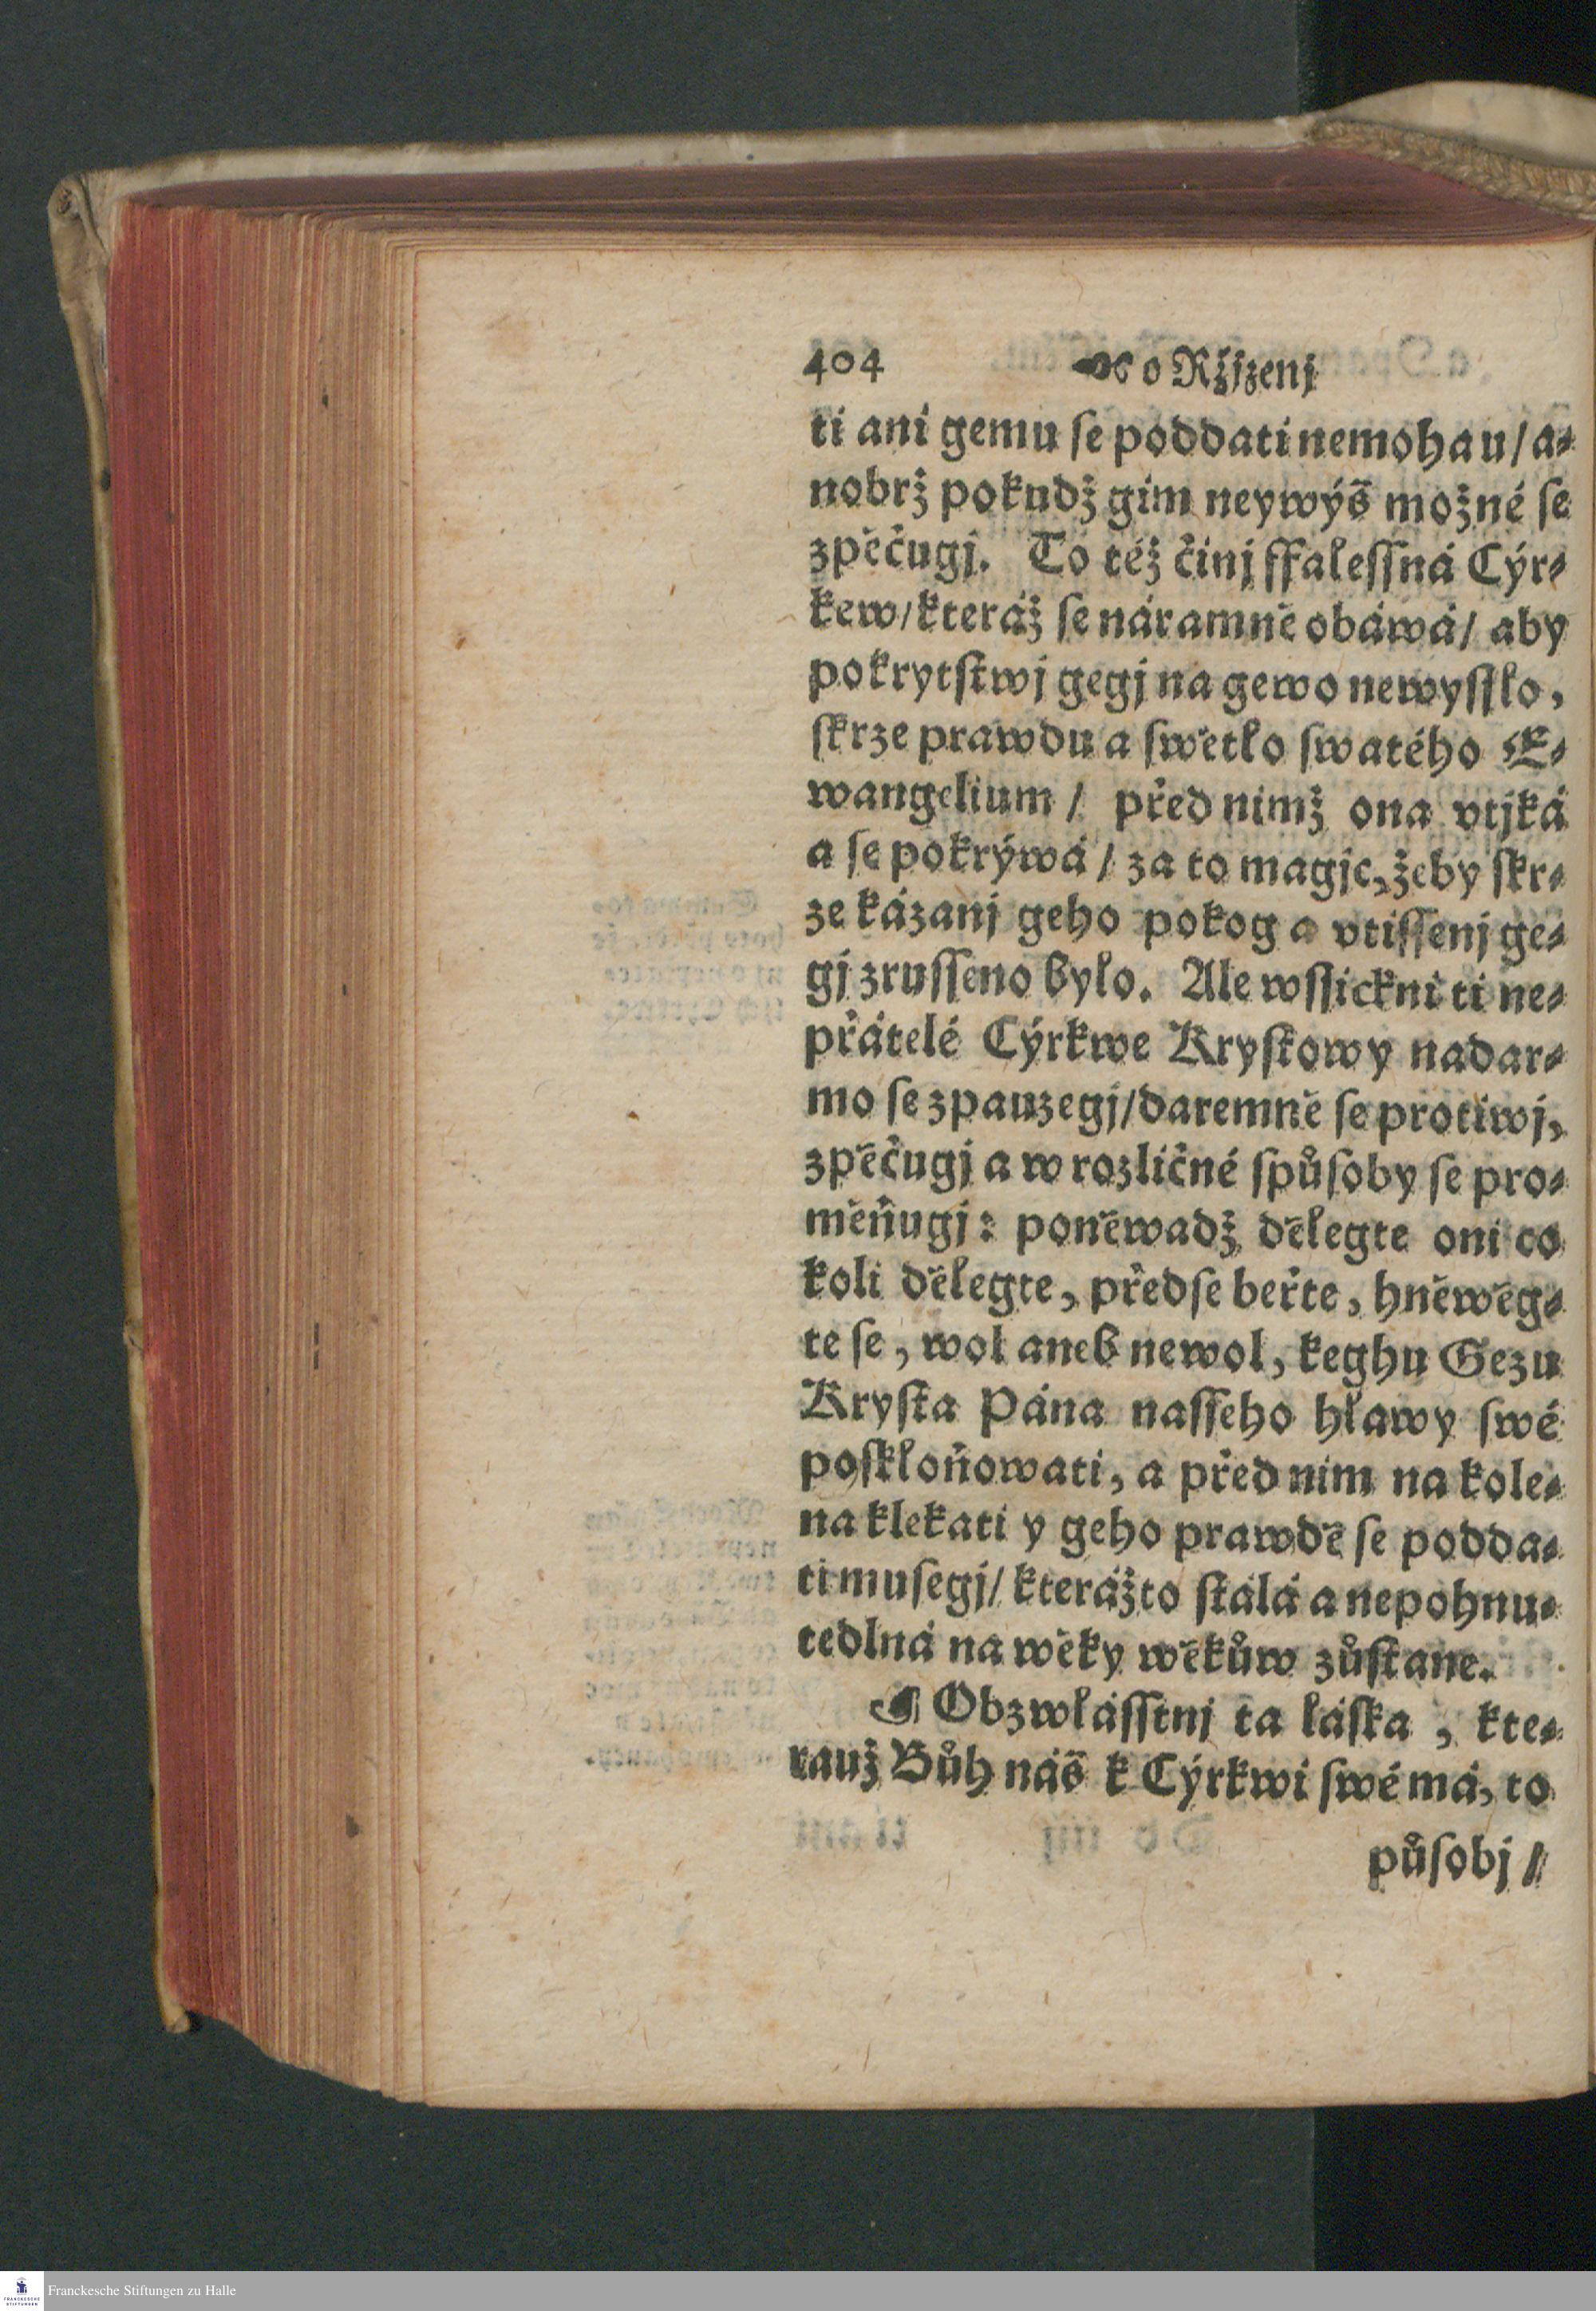 404 o Ržjzenj
ti ani gemu ſe poddati nemohau / a⸗
nobrž pokudž gim neywýš možné ſe
zpěčugj. To též činj ffaleſſná Cýr⸗
kew / kteráž ſe náramně obáwá / aby
pokrytſtwj gegj na gewo newyſſlo,
ſkrze prawdu a ſwětlo ſwatého E⸗
wangelium / před nimž ona vtjká
a ſe pokrýwá / za to magjc, žeby ſkr⸗
ze kázanj geho pokog a vtiſſenj ge⸗
gj zruſſeno bylo. Ale wſſickni ti ne⸗
přátelé Cýrkwe Kryſtowy nadar⸗
mo ſe zpauzegj / daremně ſe protiwj,
zpěčugj a w rozličné ſpůſoby ſe pro⸗
měňugj: poněwadž dělegte oni co
koli dělegte, předſe beřte, hněwěg⸗
te ſe, wol aneb newol, keghu Gezu
Kryſta Pána naſſeho hlawy ſwé
poſkloňowati, a před nim na kole⸗
na klekati y geho prawdě ſe podda⸗
ti muſegj / kterážto ſtálá a nepohnu⸗
tedlná na wěky wěkůw zůſtane.
¶ Obzwláſſtnj ta láſka, kte⸗
rauž Bůh náš k Cýrkwi ſwé má, to
půſobj /
Franckesche Stiftungen zu Halle